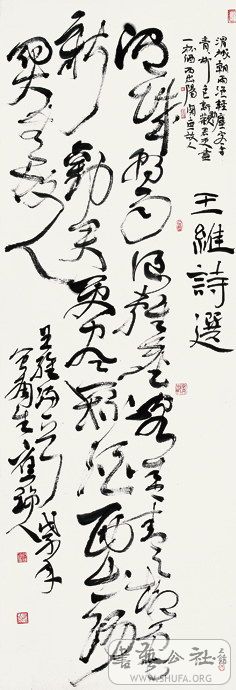 渭城朝雨浥輕塵客舍
青青柳色新勸君更盡
一杯酒西出陽關無故人
王維詩選
渭城朝雨浥輕塵客舍青青柳色
新勸君更盡一杯酒西出陽
關無故人
書藝公社
WWW.SHUFA.ORG